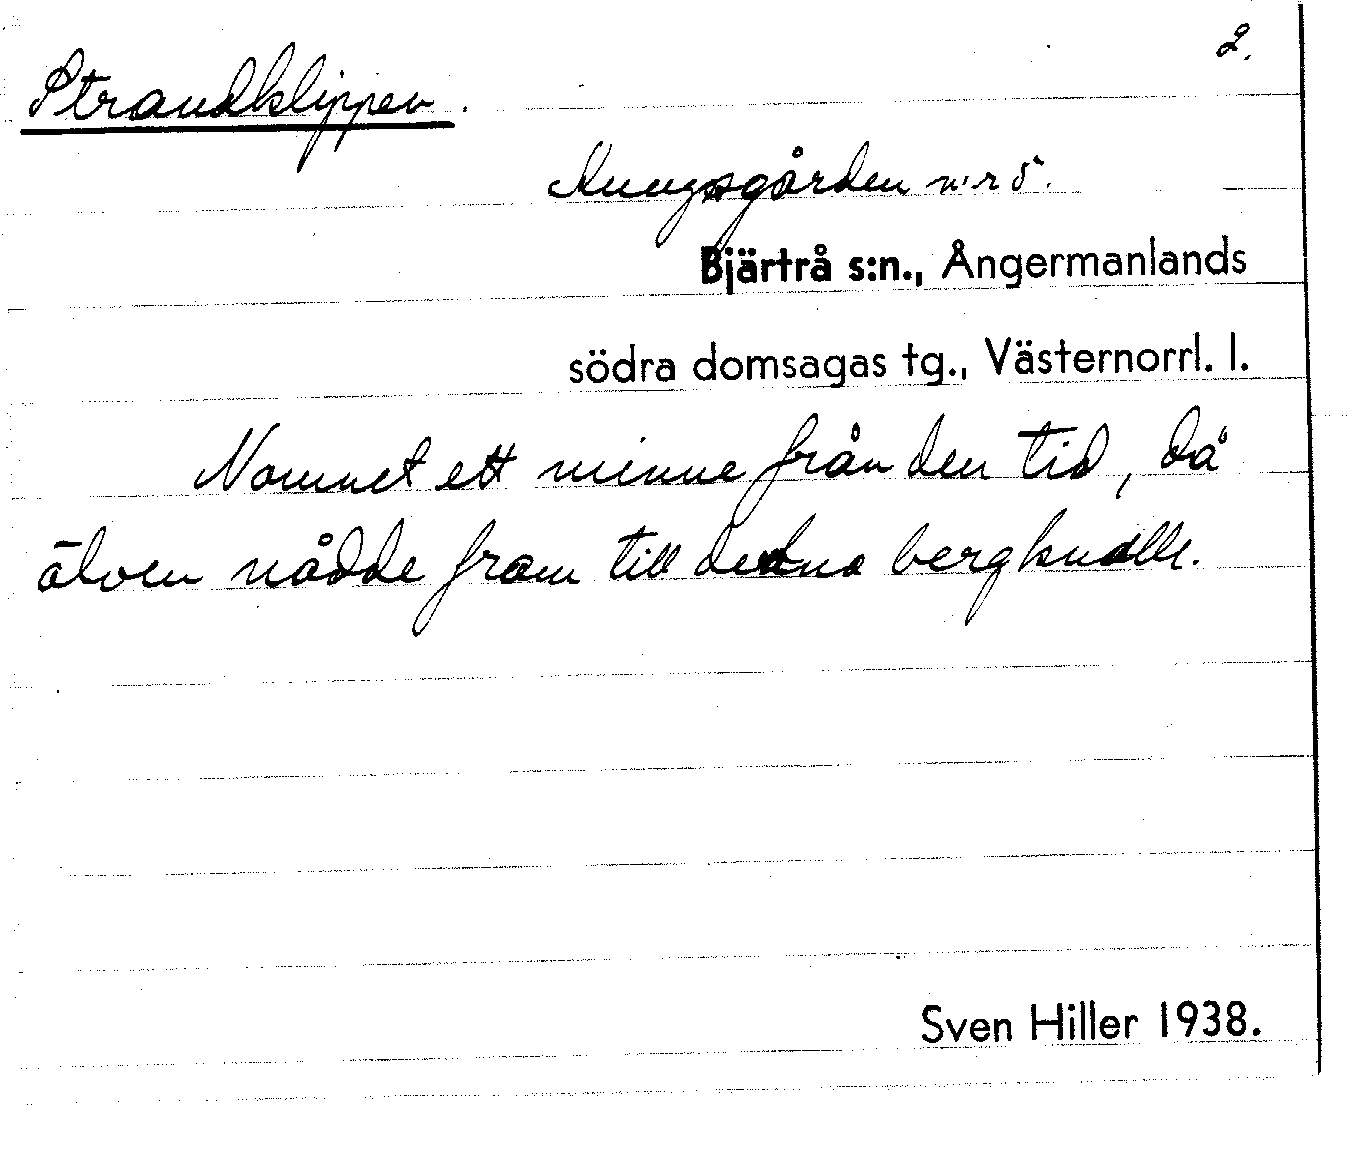 2.
Strandklippen.
Kungsgården n:r 5.
Bjärtrå s:n., Ångermanlands
södra domsagas tg., Västernorrl. l.
Namnet ett minne från den tid, då
älven nådde fram till denna bergknalle.
Sven Hiller 1938.